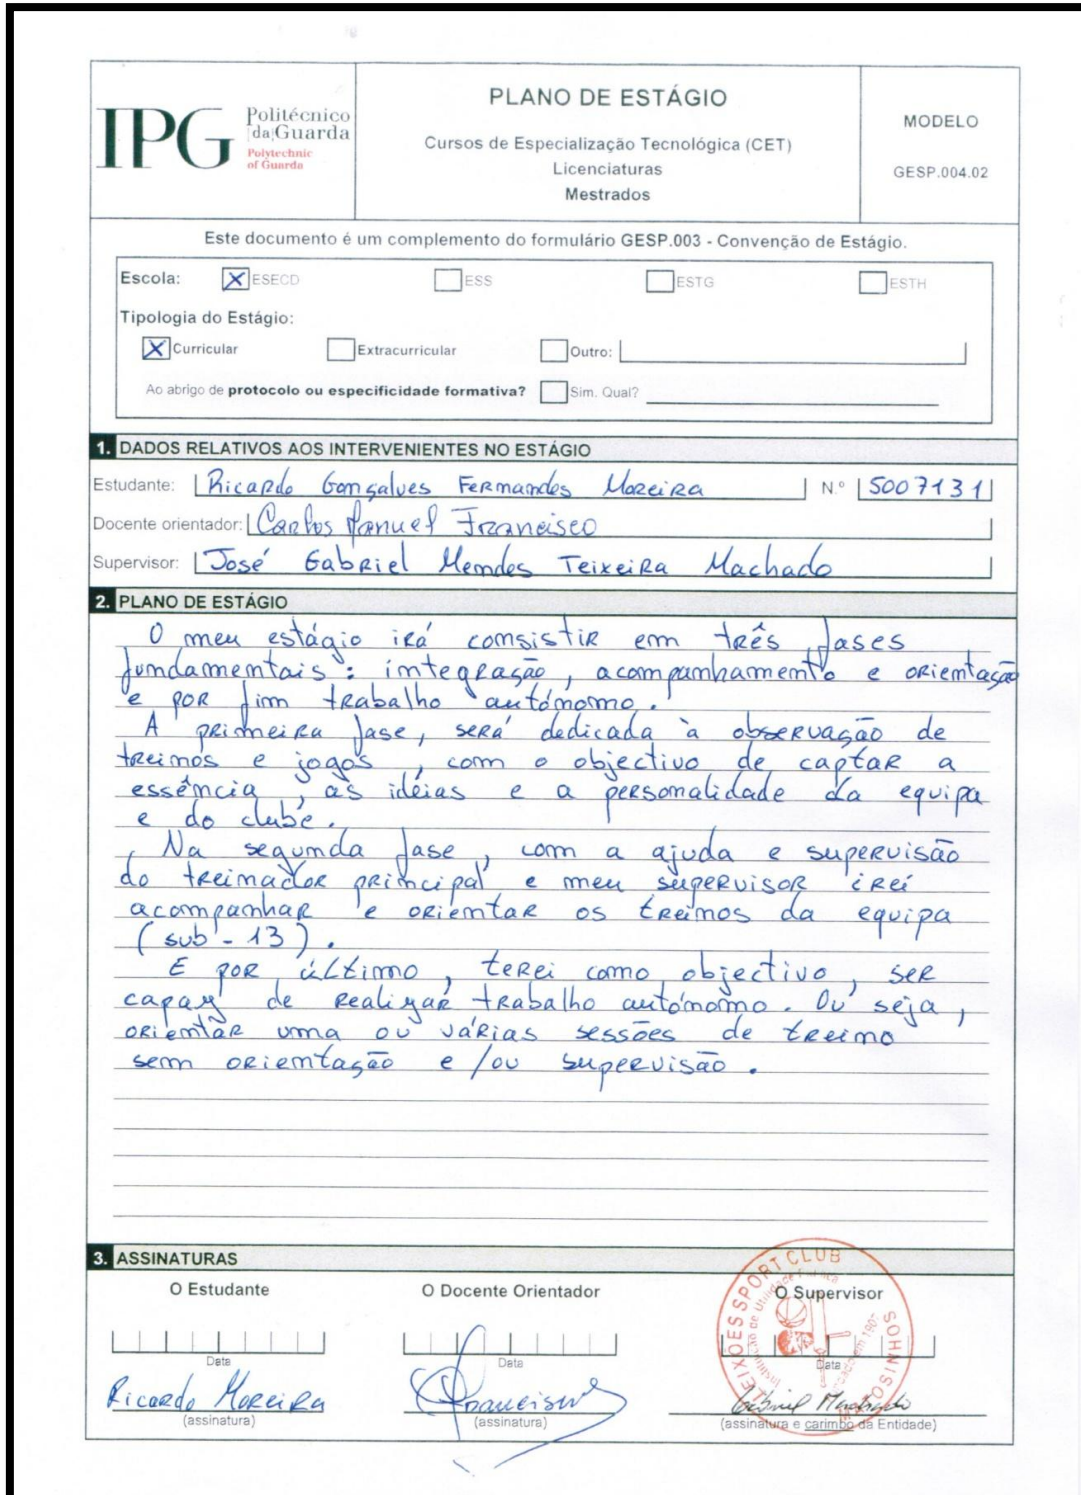 IPG
Politécnico
da Guarda
Polytechnic
of Guarda
PLANO DE ESTÁGIO
Cursos de Especialização Tecnológica (CET)
Licenciaturas
Mestrados
MODELO
GESP.004.02
Este documento é um complemento do formulário GESP.003 - Convenção de Estágio.
Escola: X ESECD ESS ESTG ESTH
Tipologia do Estágio:
X Curricular Extracurricular Outro:
Ao abrigo de protocolo ou especificidade formativa? Sim. Qual?
1. DADOS RELATIVOS AOS INTERVENIENTES NO ESTÁGIO
Estudante: Ricardo Gonçalves Fernandes Moreira N.º 5007131
Docente orientador: Carlos Manuel Francisco
Supervisor: José Gabriel Mendes Teixeira Machado
2. PLANO DE ESTÁGIO
O meu estágio irá consistir em três fases
fundamentais: integração, acompanhamento e orientação
e por fim trabalho autónomo.
A primeira fase, será dedicada à observação de
treinos e jogos, com o objectivo de captar a
essência, as idéias e a personalidade da equipa
e do clube.
Na segunda fase, com a ajuda e supervisão
do treinador principal e meu supervisor irei
acompanhar e orientar os treinos da equipa
(sub-13).
E por último, terei como objectivo, ser
capaz de realizar trabalho autónomo. Ou seja,
orientar uma ou várias sessões de treino
sem orientação e/ou supervisão.
3. ASSINATURAS
O Estudante
O Docente Orientador
O Supervisor
Data
Data
Data
Ricardo Moreira
Francisco
Gabriel Machado
(assinatura)
(assinatura)
(assinatura e carimbo da Entidade)
SPORT CLUB
MATOSINHOS